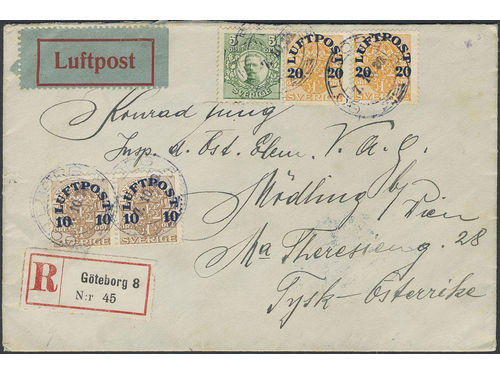 Luftpost
5 5
SVERIGE
LUFTPOST
20 20
SVERIGE
LUFTPOST
20 20
Konrad Jung
Insp. d. Öst. Elem. V. A. G.
Mödling by Wien
Ma Theresieng. 28
Tysk-Österrike
LUFTPOST
10 10
SVERIGE
LUFTPOST
10 10
SVERIGE
R
Göteborg 8
N:r 45